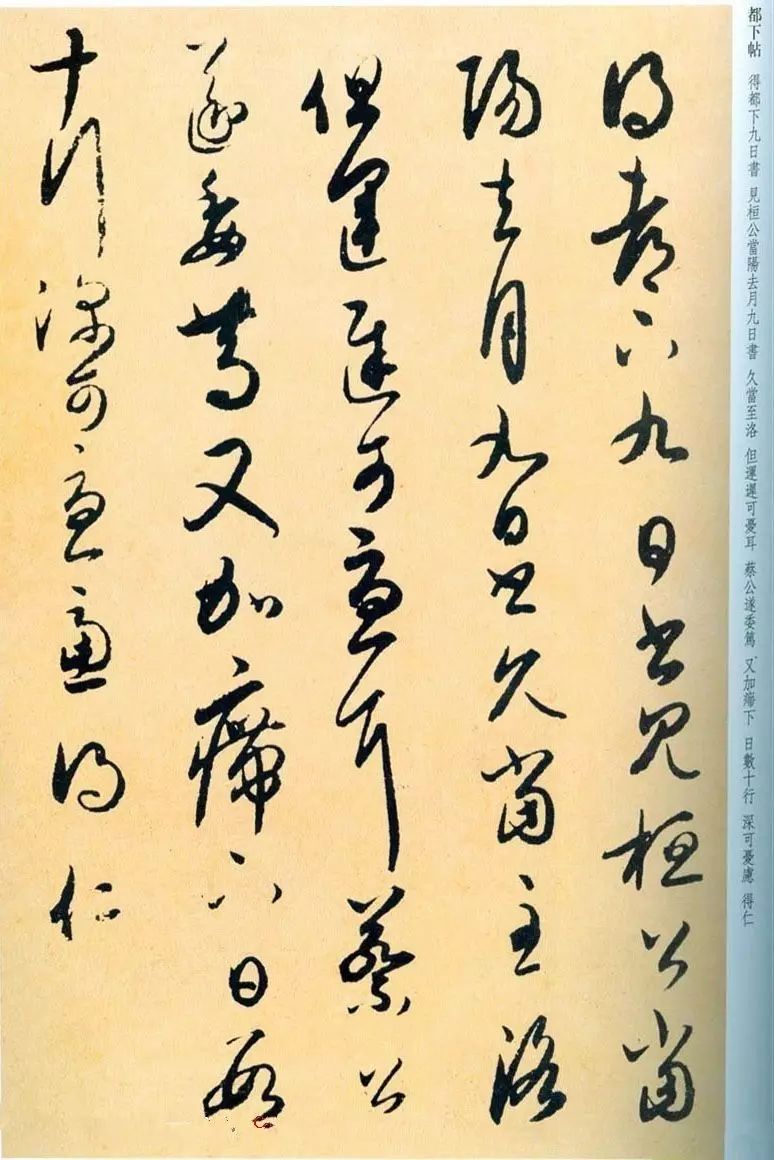 都下帖 得都下九日書 見桓公當陽去月九日書 久當至洛 但運遲可憂耳 蔡公遂委篤 又加㿃下 日數十行 深可憂慮 得仁
得都下九日書見桓公當
陽去月九日書久當至洛
但運遲可憂耳蔡公
遂委篤又加㿃下日數
十行深可憂慮得仁